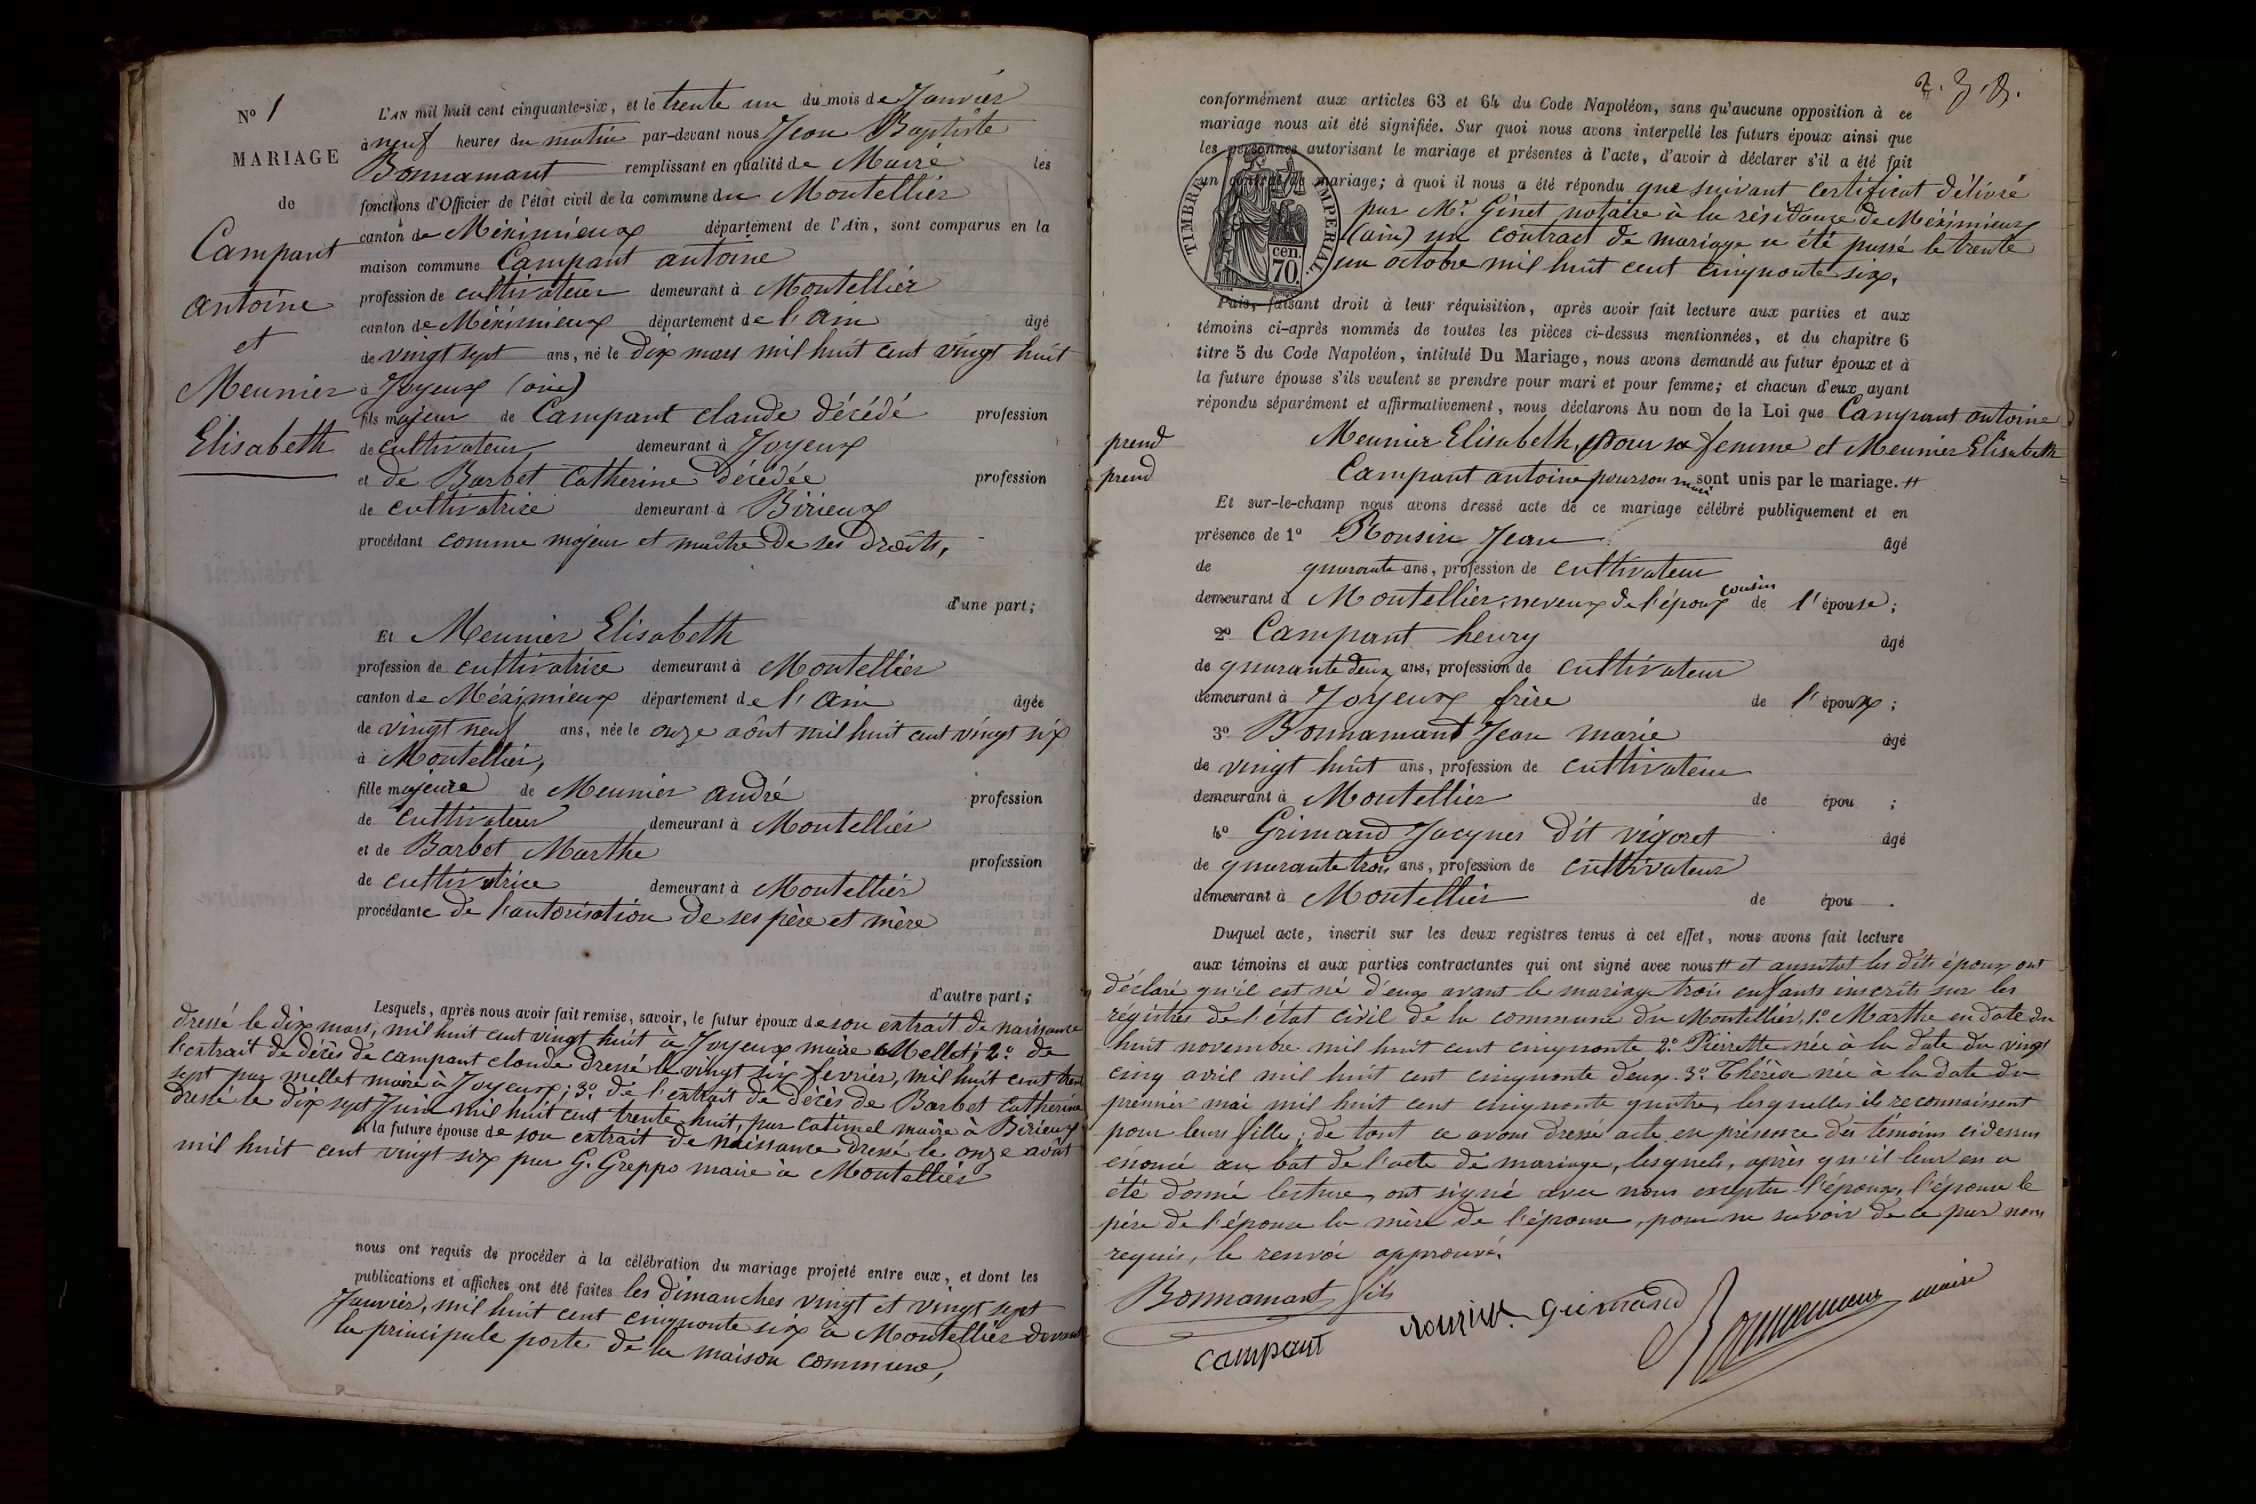 N° 1
MARIAGE
de
Campant
antoine
et
Meunier
Elisabeth
L'AN mil huit cent cinquante-six, et le trente un du mois de Janvier
à neuf heures du matin par-devant nous Jean Baptiste
Bonnamant remplissant en qualité de Maire les
fonctions d'Officier de l'état civil de la commune du Montellier
canton de Méximieux département de l'Ain, sont comparus en la
maison commune Campant antoine
profession de cultivateur demeurant à Montellier
canton de Méximieux département de l'ain âgé
de vingt sept ans, né le dix mars mil huit cent vingt huit
à Joyeux (ain)
fils majeur de Campant claude décédé profession
de cultivateur demeurant à Joyeux
et de Barbet Catherine décédée profession
de cultivatrice demeurant à Birieux
procédant comme majeur et maître de ses droits,
d'une part;
Et Meunier Elisabeth
profession de cultivatrice demeurant à Montellier
canton de Méximieux département de l'ain âgée
de vingt neuf ans, née le onze aôut mil huit cent vingt six
à Montellier,
fille majeure de Meunier andré profession
de cultivateur demeurant à Montellier
et de Barbet Marthe profession
de cultivatrice demeurant à Montellier
procédante de l'autorisation de ses père et mère
d'autre part;
Lesquels, après nous avoir fait remise, savoir, le futur époux de son extrait de naissance
dressé le dix mars, mil huit cent vingt huit à Joyeux maire Mellet; 2° de
l'extrait de décès de campant claude dressé le vingt six fevrier, mil huit cent trente
sept par mellet maire à Joyeux; 3° de l'extrait de décès de Barbet Catherine
dressé le dix sept Juin mil huit cent trente huit, par catimel maire à Birieux
la future épouse de son extrait de naissance dressé le onze aôut
mil huit cent vingt six par G. Greppo maire à Montellier
nous ont requis de procéder à la célébration du mariage projeté entre eux, et dont les
publications et affiches ont été faites les dimanches vingt et vingt sept
Janvier, mil huit cent cinquante six à Montellier devant
la principale porte de la maison commune,
conformément aux articles 63 et 64 du Code Napoléon, sans qu'aucune opposition à ce
mariage nous ait été signifiée. Sur quoi nous avons interpellé les futurs époux ainsi que
les personnes autorisant le mariage et présentes à l'acte, d'avoir à déclarer s'il a été fait
un contrat de mariage; à quoi il nous a été répondu que suivant certificat délivré
par Mr. Ginet notaire à la résidance de Méximieux
(ain) un contract de mariage a été passé le trente
un octobre mil huit cent cinquante six,
TIMBRE IMPERIAL.
cen. 70.
Puis, faisant droit à leur réquisition, après avoir fait lecture aux parties et aux
témoins ci-après nommés de toutes les pièces ci-dessus mentionnées, et du chapitre 6
titre 5 du Code Napoléon, intitulé Du Mariage, nous avons demandé au futur époux et à
la future épouse s'ils veulent se prendre pour mari et pour femme; et chacun d'eux ayant
répondu séparément et affirmativement, nous déclarons Au nom de la Loi que Campant antoine
prend Meunier Elisabeth pour sa femme et Meunier Elisabeth
prend Campant antoine pour son mari sont unis par le mariage. #
Et sur-le-champ nous avons dressé acte de ce mariage célébré publiquement et en
présence de 1° Rousin Jean âgé
de quarante ans, profession de cultivateur
demeurant à Montellier, neveux de l'époux cousin de l'épouse;
2° Campant henry âgé
de quarante deux ans, profession de cultivateur
demeurant à Joyeux frère de l'époux;
3° Bonnamant Jean marie âgé
de vingt huit ans, profession de cultivateur
demeurant à Montellier de épou ;
4° Grimand Jacques dit vigoret âgé
de quarante trois ans, profession de cultivateur
demeurant à Montellier de épou .
Duquel acte, inscrit sur les deux registres tenus à cet effet, nous avons fait lecture
aux témoins et aux parties contractantes qui ont signé avec nous # et aussitot les dits époux ont
déclaré qu'il est né d'eux avant le mariage trois enfants inscrits sur les
régistres de l'état civil de la commune du Montellier, 1° Marthe en date du
huit novembre mil huit cent cinquante 2° Pierrette née à la date du vingt
cinq avril mil huit cent cinquante deux. 3° Thérèse née à la date du
premier mai mil huit cent cinquante quatre, lesquelles ils reconnaissent
pour leurs filles, de tout ce avons dressé acte en présence des témoins cidessus
énoncé au bat de l'acte de mariage, lesquels, après qu'il leur en a
été donné lecture, ont signé avec nous excepter l'époux, l'épouse le
père de l'épouse la mère de l'épouse, pour ne savoir de ce par nous
requis, le renvoi approuvé.
Bonnamant fils
campant
Grimand
Bonnamant maire